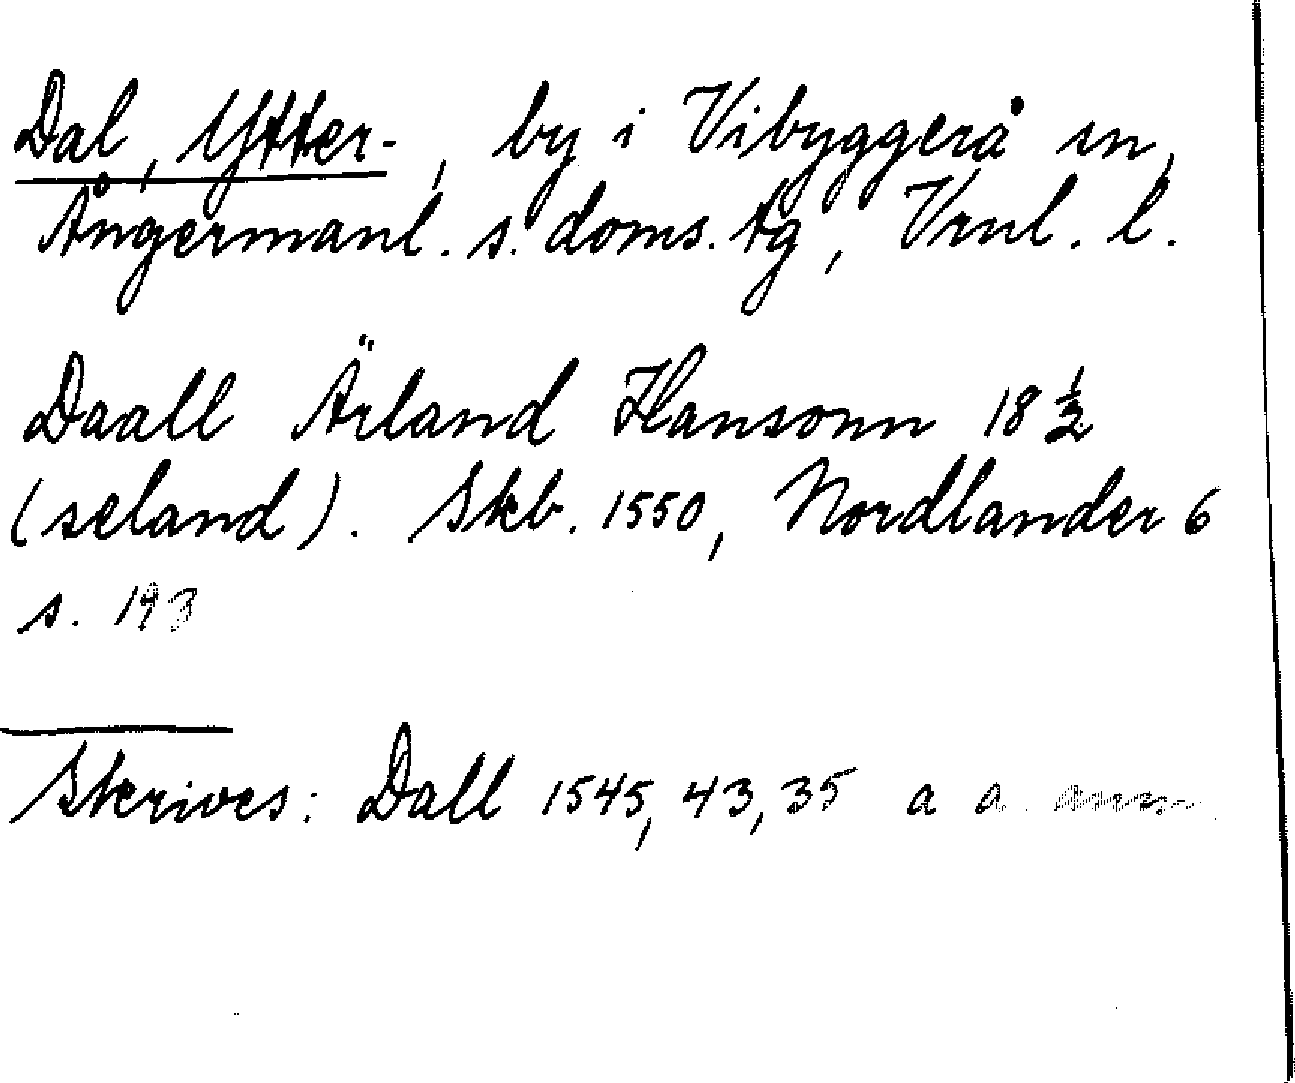 Dal, Ytter-, by i Vibyggerå sn,
Ångermanl. s. doms. tg, Vrnl. l.
Daall Ärland Hansonn 18 ½
(seland). Skb. 1550, Nordlander 6
s. 193
Skrives: Dall 1545, 43, 35 a a